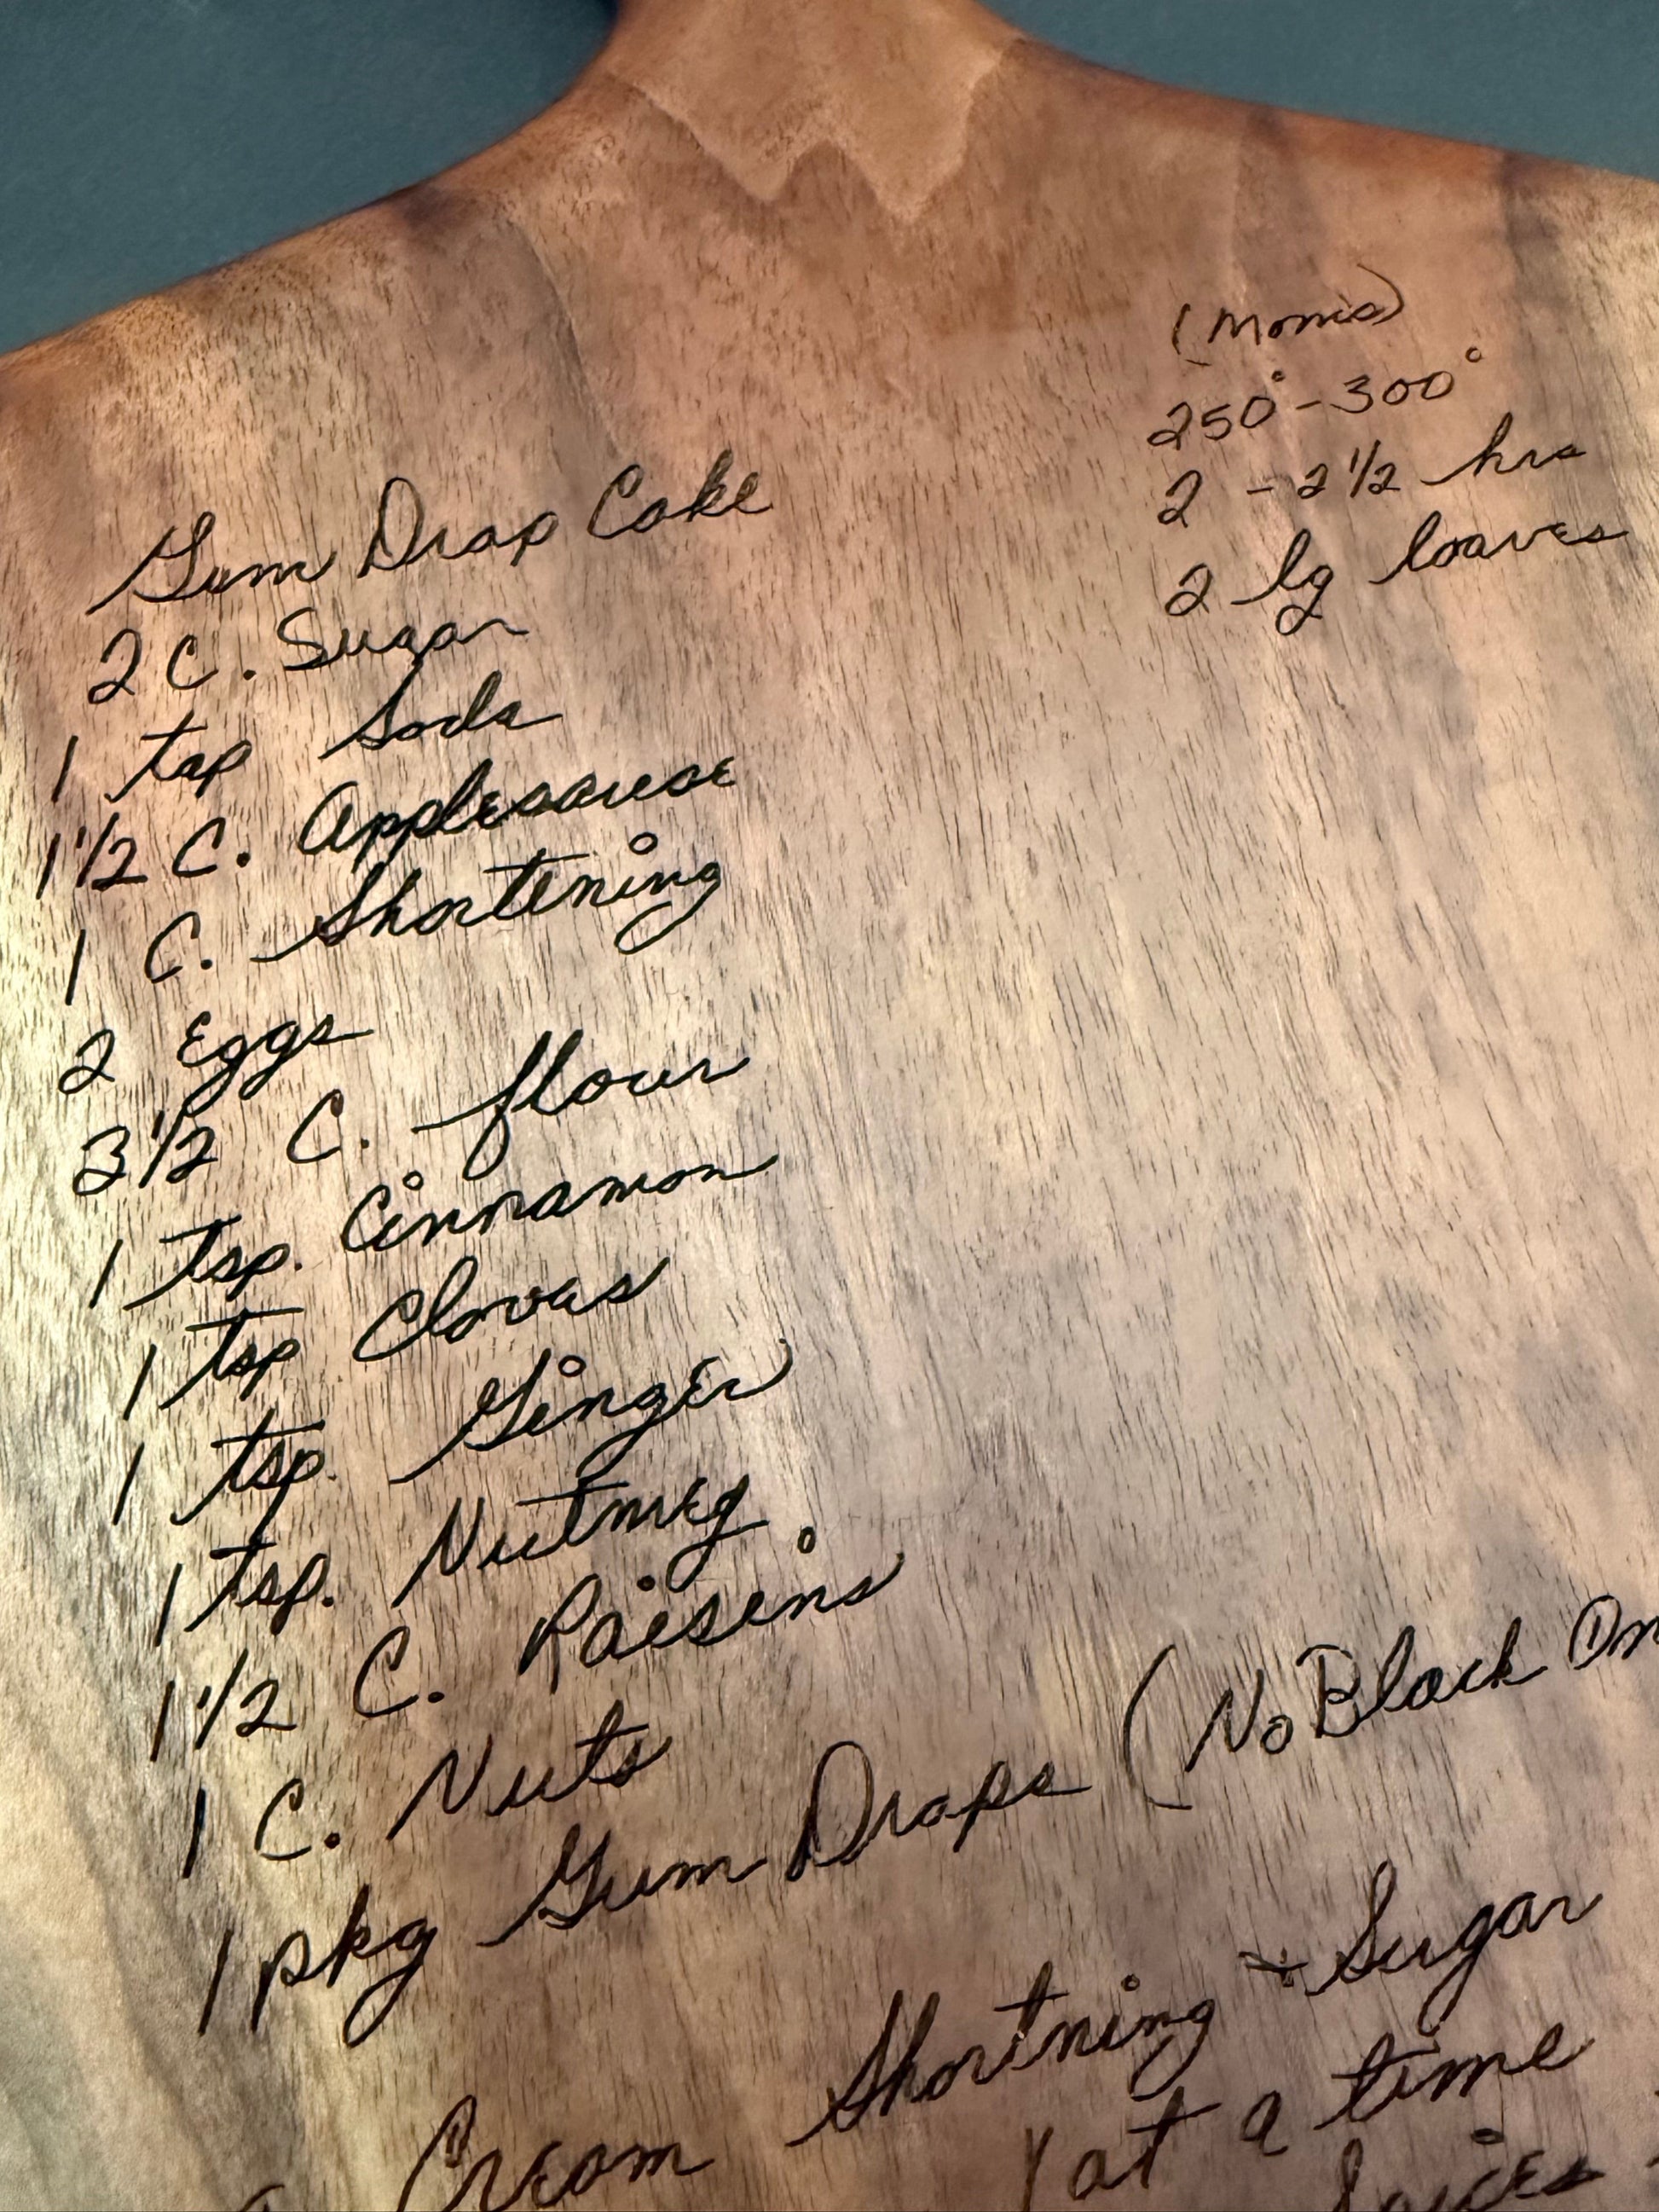 (Moms)
250° - 300°
2 - 2 1/2 hrs
2 lg loaves
Gum Drop Cake
2 C. Sugar
1 tsp Soda
1 1/2 C. Applesauce
1 C. Shortening
2 Eggs
3 1/2 C. flour
1 tsp. Cinnamon
1 tsp Cloves
1 tsp. Ginger
1 tsp. Nutmeg
1 1/2 C. Raisins
1 C. Nuts
1 pkg Gum Drops (No Black
Cream Shortning + Sugar
1 at a time